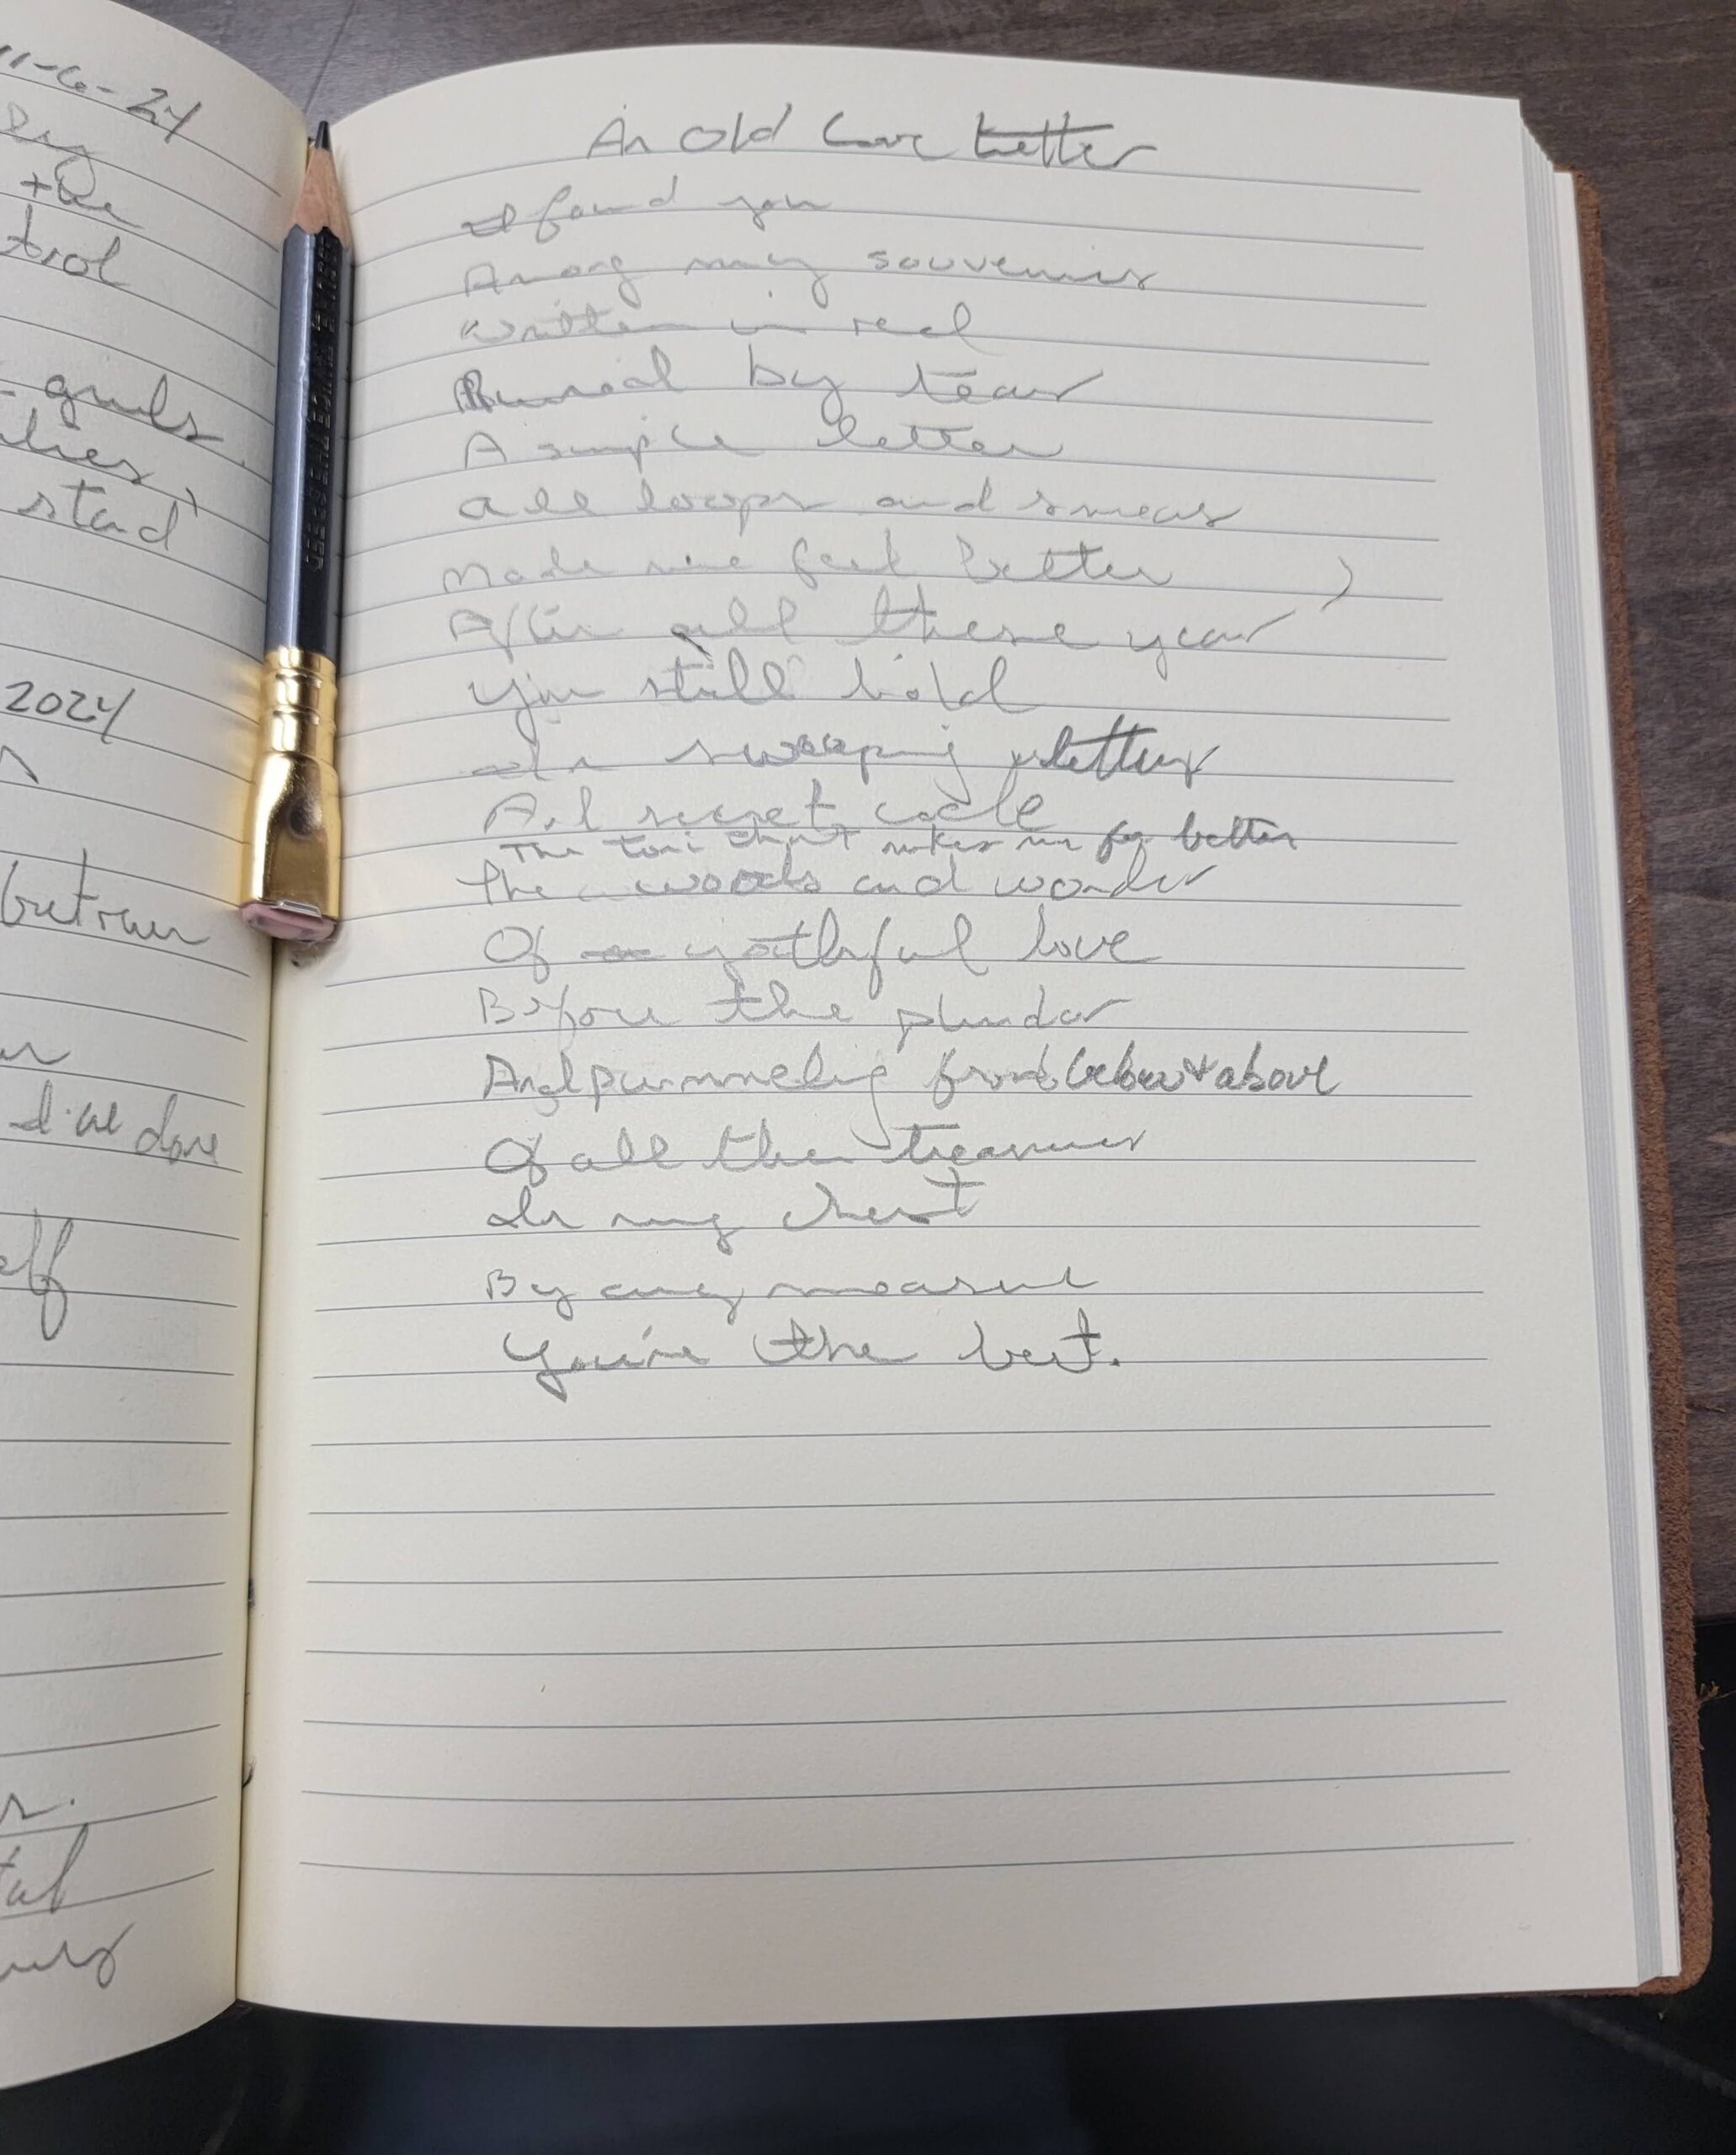 11-6-24
the
trol
grubs.
stand
2024
between
I've done
elf
An Old Love Letter
I found you
Among my souvenirs
Written in red
Blurred by tears
A simple letter
All loops and smears
Made me feel better
After all these years
You still hold
In swooping letters
A secret code
The tori that makes me far better
The words and wonder
Of youthful love
Before the plunder
And pummeling from below & above
Of all the treasures
In my chest
By any measure
You're the best.